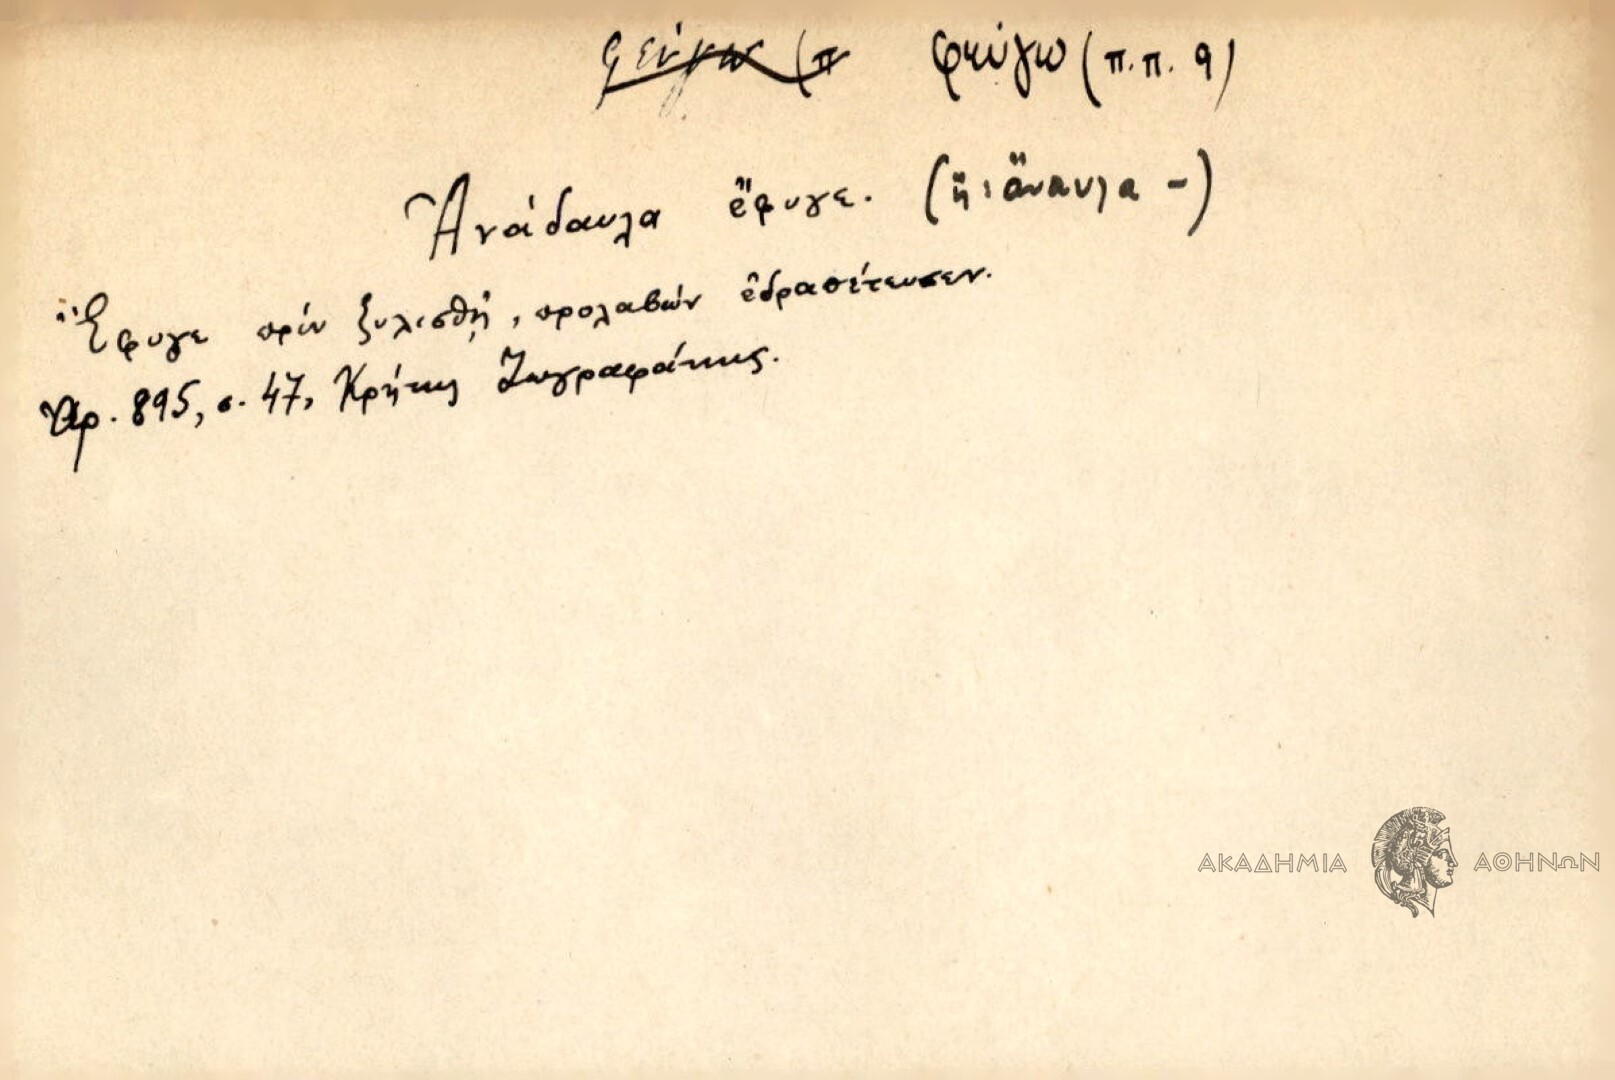 φεύγω (π φεύγω (π.π. 9)
Ἀνάδαυλα ἔφυγε. (ἤ: ἄναυλα -)
Ἔφυγε πρίν ξυλισθῇ, προλαβών ἐδραπέτευσεν.
Ἀρ. 895, σ. 47, Κρήτης Ζωγραφάκης.
ΑΚΑΔΗΜΙΑ ΑΘΗΝΩΝ